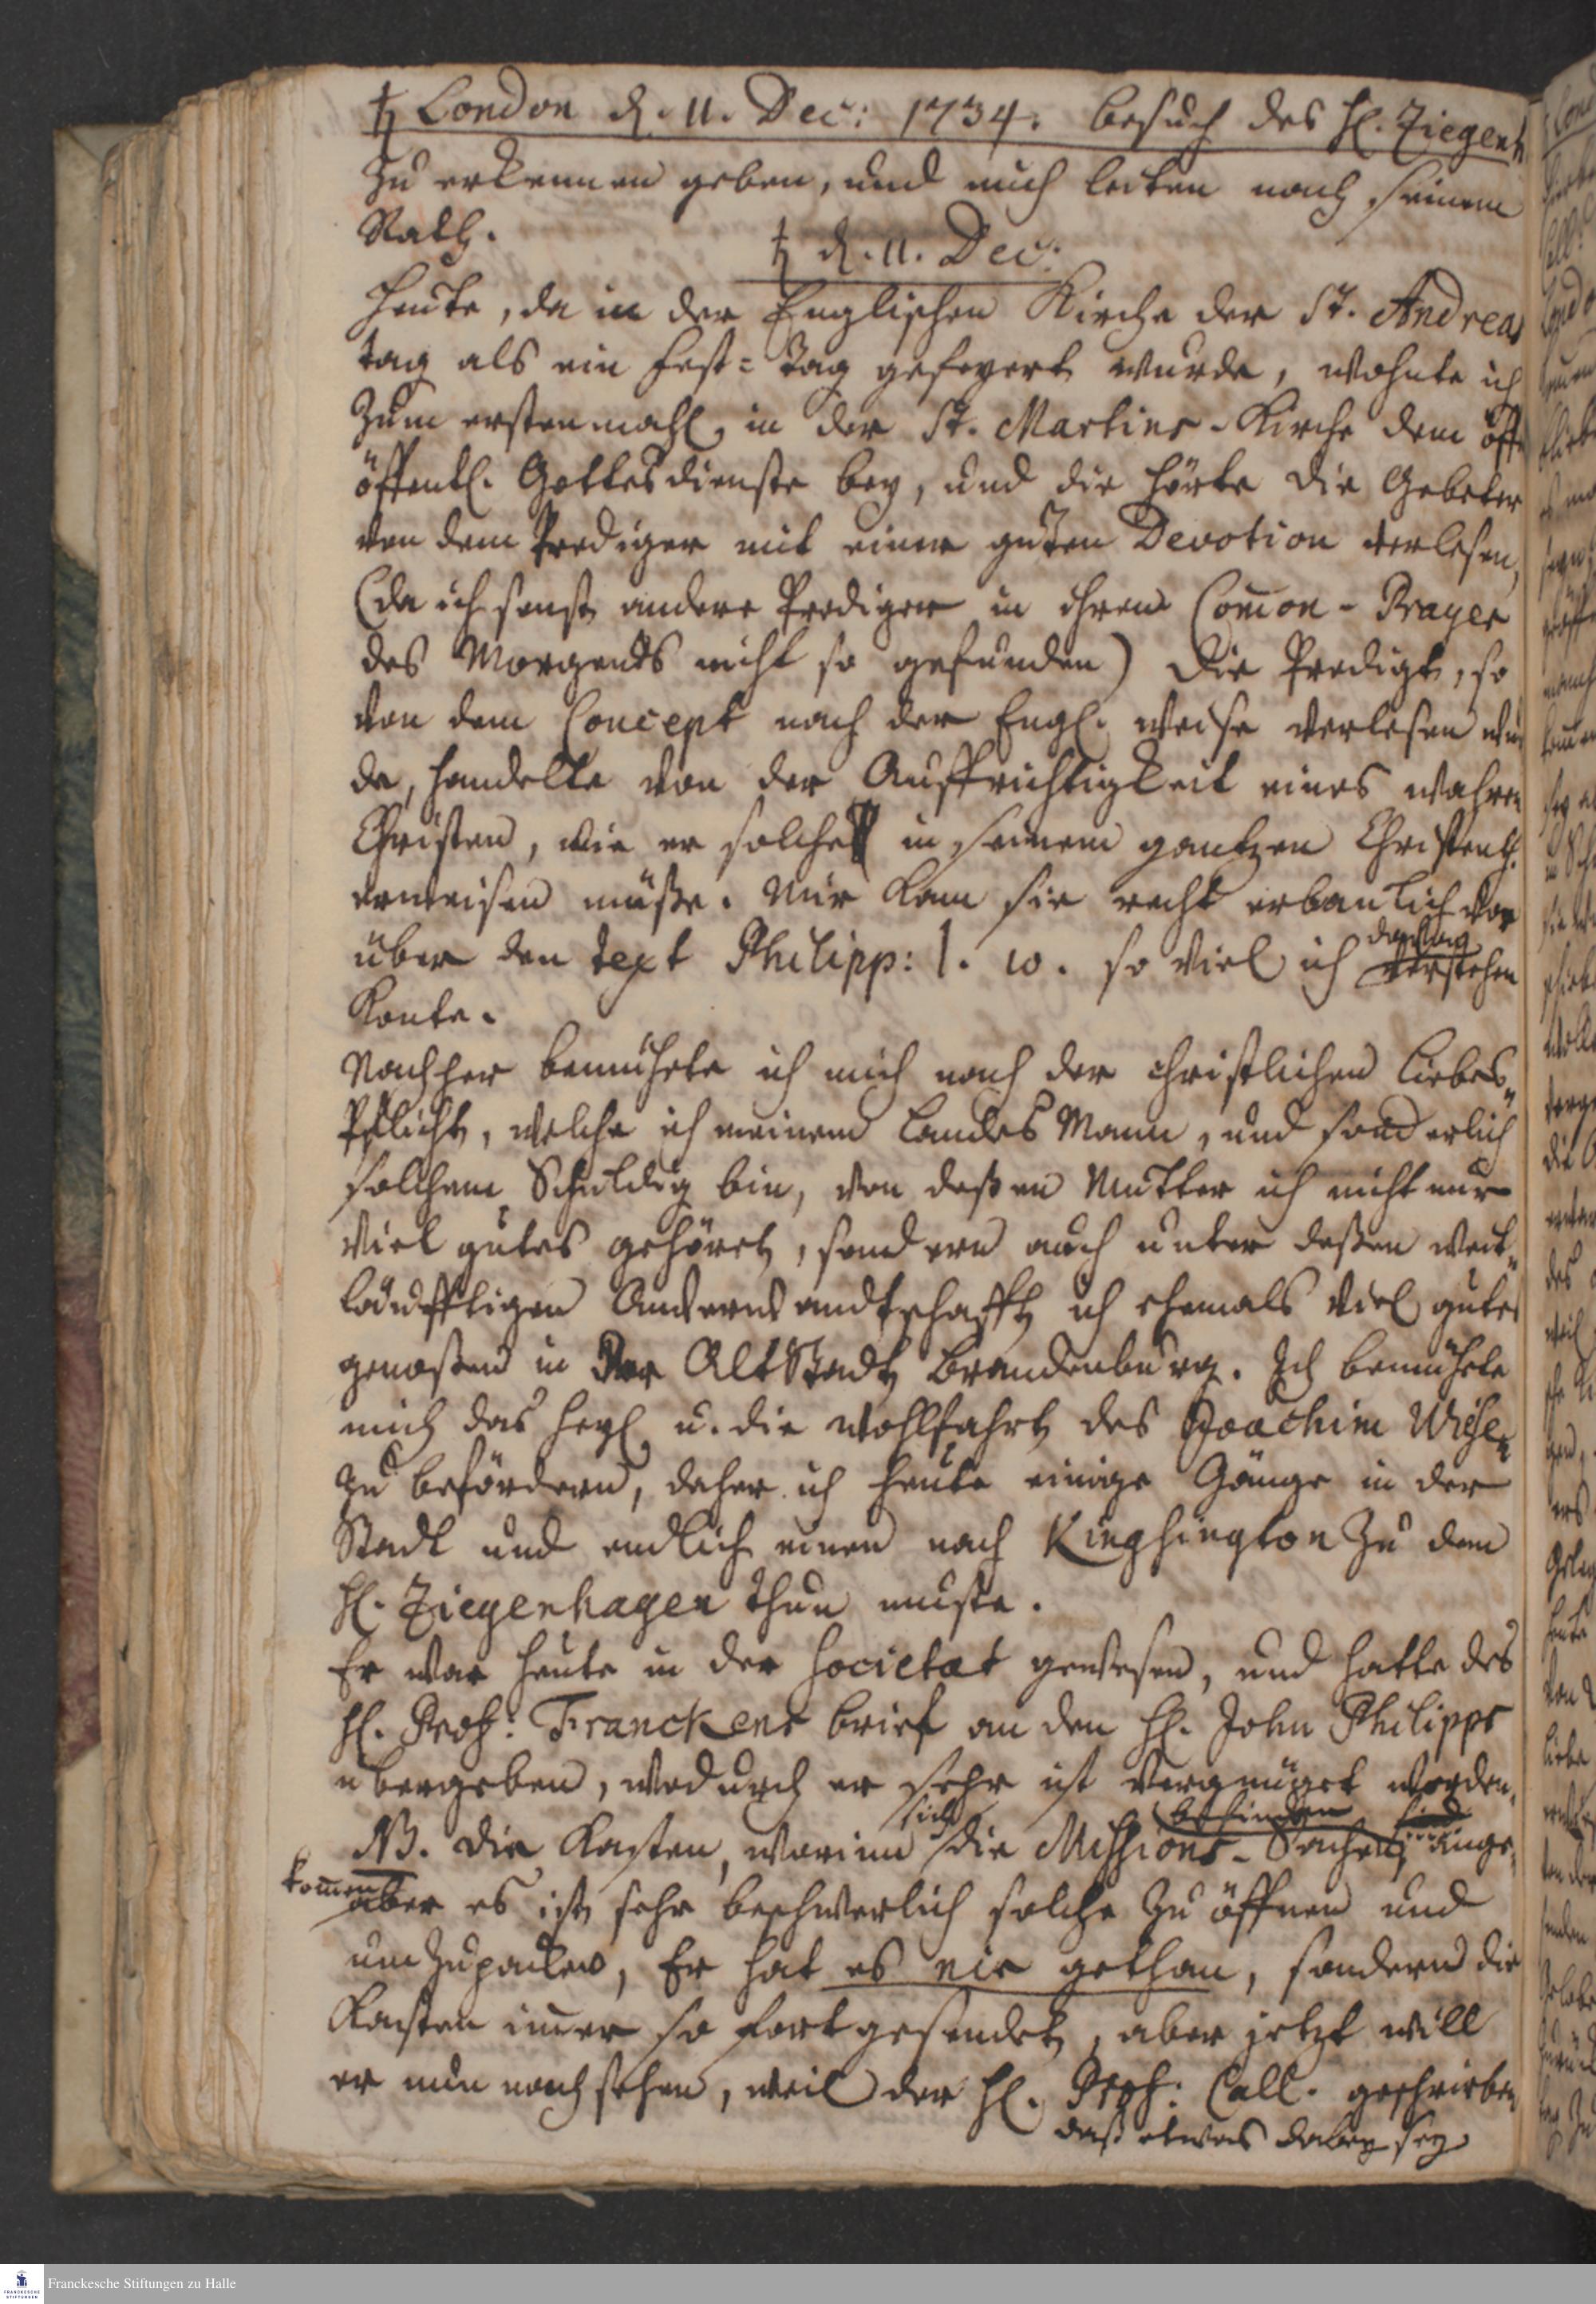 ♄ London d. 11. Dec: 1734. besuch des H. Ziegenh
zu erkennen geben, und mich leiten nach seinem
Rath.
♄ d. 11. Dec:
Heute, da in der Englischen Kirche der St. Andreas
tag als ein Fest-tag gefeyert wurde, wohnte ich
zum erstenmahl, in der St. Martins-Kirche dem öff
öffentl. Gottesdienste bey, und die hörte die Gebeter
von dem Prediger mit einer guten Devotion verlesen,
(da ich sonst andere Prediger in ihren Com̅on-Prayer
des Morgends nicht so gefunden) Die Predigt, so
von dem Concept nach der Engl. weise verlesen wur
de, handelte von der Auffrichtigkeit eines wahren
Christen, wie er solche in seinem gantzen Christenth.
erweisen müße. Mir kam sie recht erbaulich vor
über den text Philipp: 1. 10. so viel ich davon verstehen
konte.
Nachher bemühete ich mich nach der christlichen Liebes-
Pflicht, welche ich meinem Landes Mann, und sonderlich
solchem Schuldig bin, von deßen Mutter ich nicht nur
viel gutes gehöret, sondern auch unter deßen weit-
läufftigen Anverwandtschafft ich ehemals viel gutes
genoßen in Der AltStadt Brandenburg. Ich bemühete
mich das Heyl u. die wohlfahrt des Joachim Wiesen
zu befördern, daher ich heute einige Gänge in der
Stadt und endlich einen nach Kinghington zu dem
H. Ziegenhagen thun muste.
Er war heute in der Societat gewesen, und hatte des
H. Prof: Franckens brief an den H. John Philipps
übergeben, wodurch er sehr ist vergnüget worden.
NB. Die Kasten, worinn sich die Missions-Sachen befinden sind ange-
kom̅en
aber es ist sehr beschwerlich solche zu öffnen und
umzupacken, Er hat es nie gethan, sondern die
Kasten im̅er so fortgesendet, aber jetzt will
er nun nachsehen, weil der H. Prof: Call. geschrieben
daß etwas dabey sey
Franckesche Stiftungen zu Halle